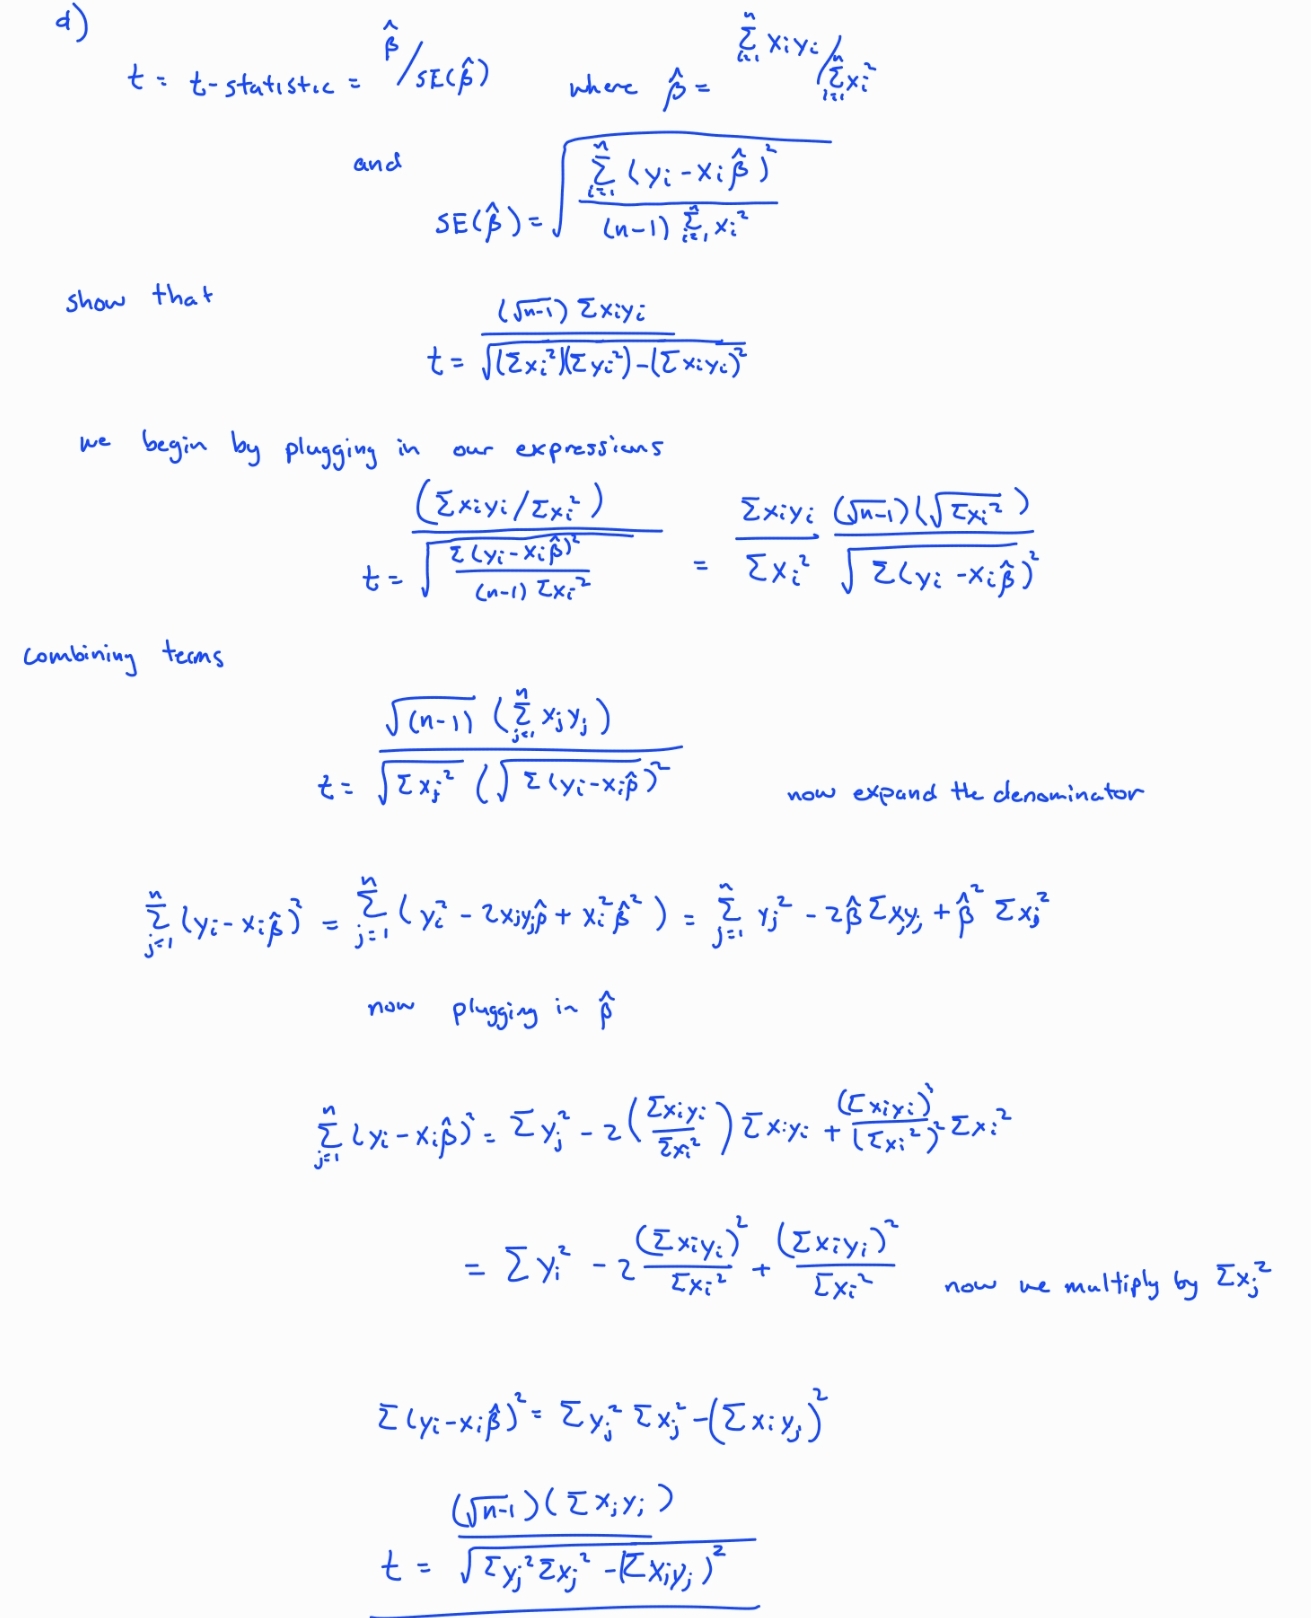 d)
t = t-statistic = β̂ / SE(β̂) where β̂ = Σ_{i=1}^{n} xᵢyᵢ / Σ_{i=1}^{n} xᵢ²
and
SE(β̂) = √( Σ_{i=1}^{n} (yᵢ - xᵢβ̂)² / ((n-1) Σ_{i=1}^{n} xᵢ²) )
show that
t = (√n-1) Σxᵢyᵢ / √( (Σxᵢ²)(Σyᵢ²) - (Σxᵢyᵢ)² )
we begin by plugging in our expressions
t = (Σxᵢyᵢ / Σxᵢ²) / √( Σ(yᵢ - xᵢβ̂)² / ((n-1) Σxᵢ²) ) = Σxᵢyᵢ / Σxᵢ² (√n-1)(√Σxᵢ²) / √Σ(yᵢ - xᵢβ̂)²
combining terms
t = √(n-1) (Σ_{j=1}^{n} xⱼyⱼ) / √Σxⱼ² (√Σ(yᵢ - xᵢβ̂)² now expand the denominator
Σ_{j=1}^{n} (yᵢ - xᵢβ̂)² = Σ_{j=1}^{n} (yᵢ² - 2xⱼyⱼβ̂ + xᵢ²β̂²) = Σ_{j=1}^{n} yⱼ² - 2β̂ Σxⱼyⱼ + β̂² Σxⱼ²
now plugging in β̂
Σ_{j=1}^{n} (yᵢ - xᵢβ̂)² = Σyⱼ² - 2(Σxᵢyᵢ / Σxᵢ²) Σxᵢyᵢ + (Σxᵢyᵢ)² / (Σxᵢ²)² Σxᵢ²
= Σyᵢ² - 2 (Σxᵢyᵢ)² / Σxᵢ² + (Σxᵢyᵢ)² / Σxᵢ² now we multiply by Σxⱼ²
Σ(yᵢ - xᵢβ̂)² = Σyⱼ² Σxⱼ² - (Σxᵢyⱼ)²
t = (√n-1)(Σxⱼyⱼ) / √( Σyⱼ² Σxⱼ² - (Σxⱼyⱼ)² )